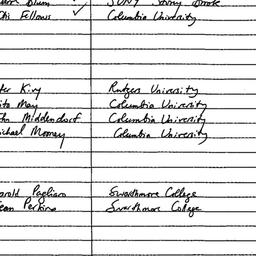 Blum ✓ SUNY Stony Brook
Otis Fellows Columbia University
ter King Rutgers University
ita May Columbia University
ohn Middendorf Columbia University
ichael Mooney Columbia University
arold Pagliaro Swarthmore College
ean Perkins Swarthmore College